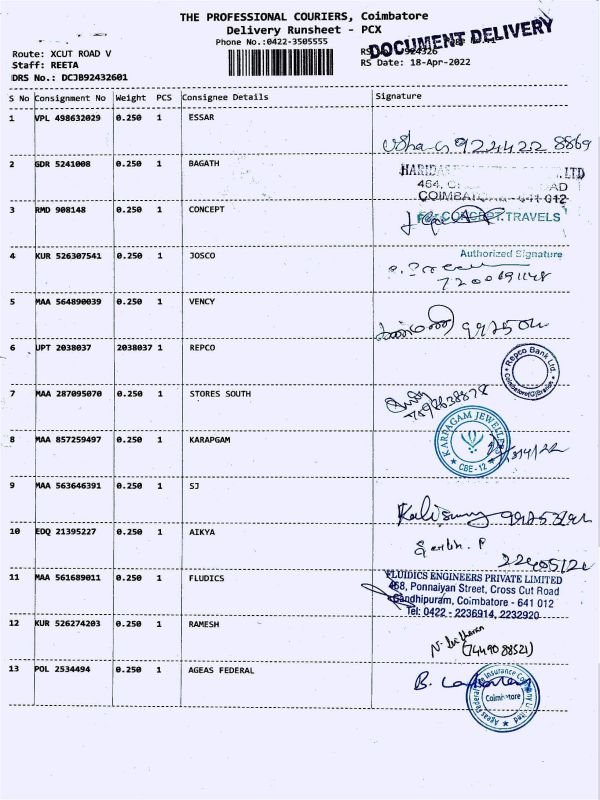 THE PROFESSIONAL COURIERS, Coimbatore
Delivery Runsheet - PCX
Phone No.:0422-3505555
DOCUMENT DELIVERY
Route: XCUT ROAD V
Staff: REETA
DRS No.: DCJB92432601
RS Date: 18-Apr-2022
S No Consignment No Weight PCS Consignee Details Signature
1 VPL 498632029 0.250 1 ESSAR
9224422 8869
2 GDR 5241008 0.250 1 BAGATH
LTD
464,
COIMBATORE - 641 012
3 RMD 908148 0.250 1 CONCEPT
For CONCEPT TRAVELS
4 KUR 526307541 0.250 1 JOSCO
Authorized Signature
7200691148
5 MAA 564890039 0.250 1 VENCY
6 UPT 2038037 2038037 1 REPCO
Repco Bank Ltd.
7 MAA 287095070 0.250 1 STORES SOUTH
8 MAA 857259497 0.250 1 KARAPGAM
KARPAGAM JEWELLERS
CBE-12
9 MAA 563646391 0.250 1 SJ
10 EDQ 21395227 0.250 1 AIKYA
11 MAA 561689011 0.250 1 FLUDICS
FLUIDICS ENGINEERS PRIVATE LIMITED
468, Ponnaiyan Street, Cross Cut Road
Gandhipuram, Coimbatore - 641 012
Tel: 0422 - 2236914, 2232920
12 KUR 526274203 0.250 1 RAMESH
(74490 88521)
13 POL 2534494 0.250 1 AGEAS FEDERAL
B.
Ageas Federal Insurance Company Limited
Coimbatore